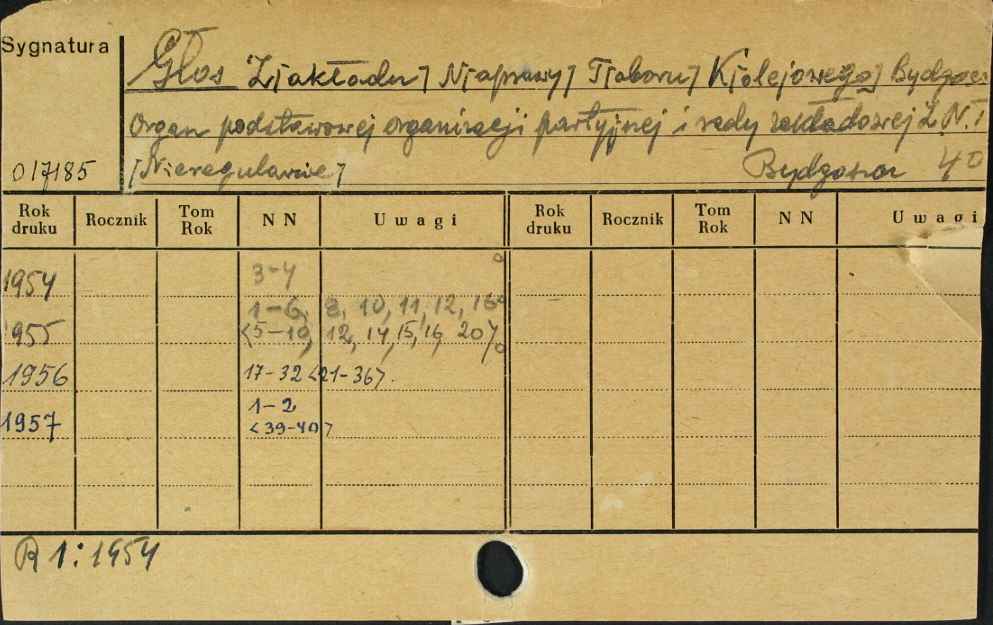 Sygnatura
Głos Z[akładu] N[aprawy] T[aboru] K[olejowego] Bydgosz
Organ podstawowej organizacji partyjnej i rady zakładowej Z.N.T
017185 [Nieregularnie] Bydgoszcz 40
Rok druku Rocznik Tom Rok NN Uwagi Rok druku Rocznik Tom Rok NN Uwagi
1954 3-4
1-6, 8, 10, 11, 12, 16
1955 <5-10, 12, 14, 15, 16, 20>
1956 17-32 <21-36>.
1-2
1957 <39-40>
R 1: 1954